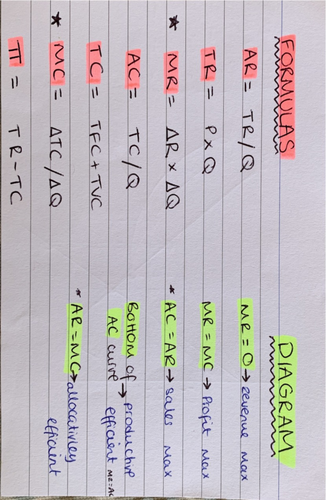 FORMULAS
AR = TR/Q
TR = P x Q
* MR = ΔR x ΔQ
AC = TC/Q
TC = TFC + TVC
* MC = ΔTC/ΔQ
π = TR - TC
DIAGRAM
MR = 0 → revenue max
MR = MC → Profit max
* AC = AR → sales max
Bottom of → productive
AC curve efficient MC=AC
* AR = MC → allocitivley
efficient